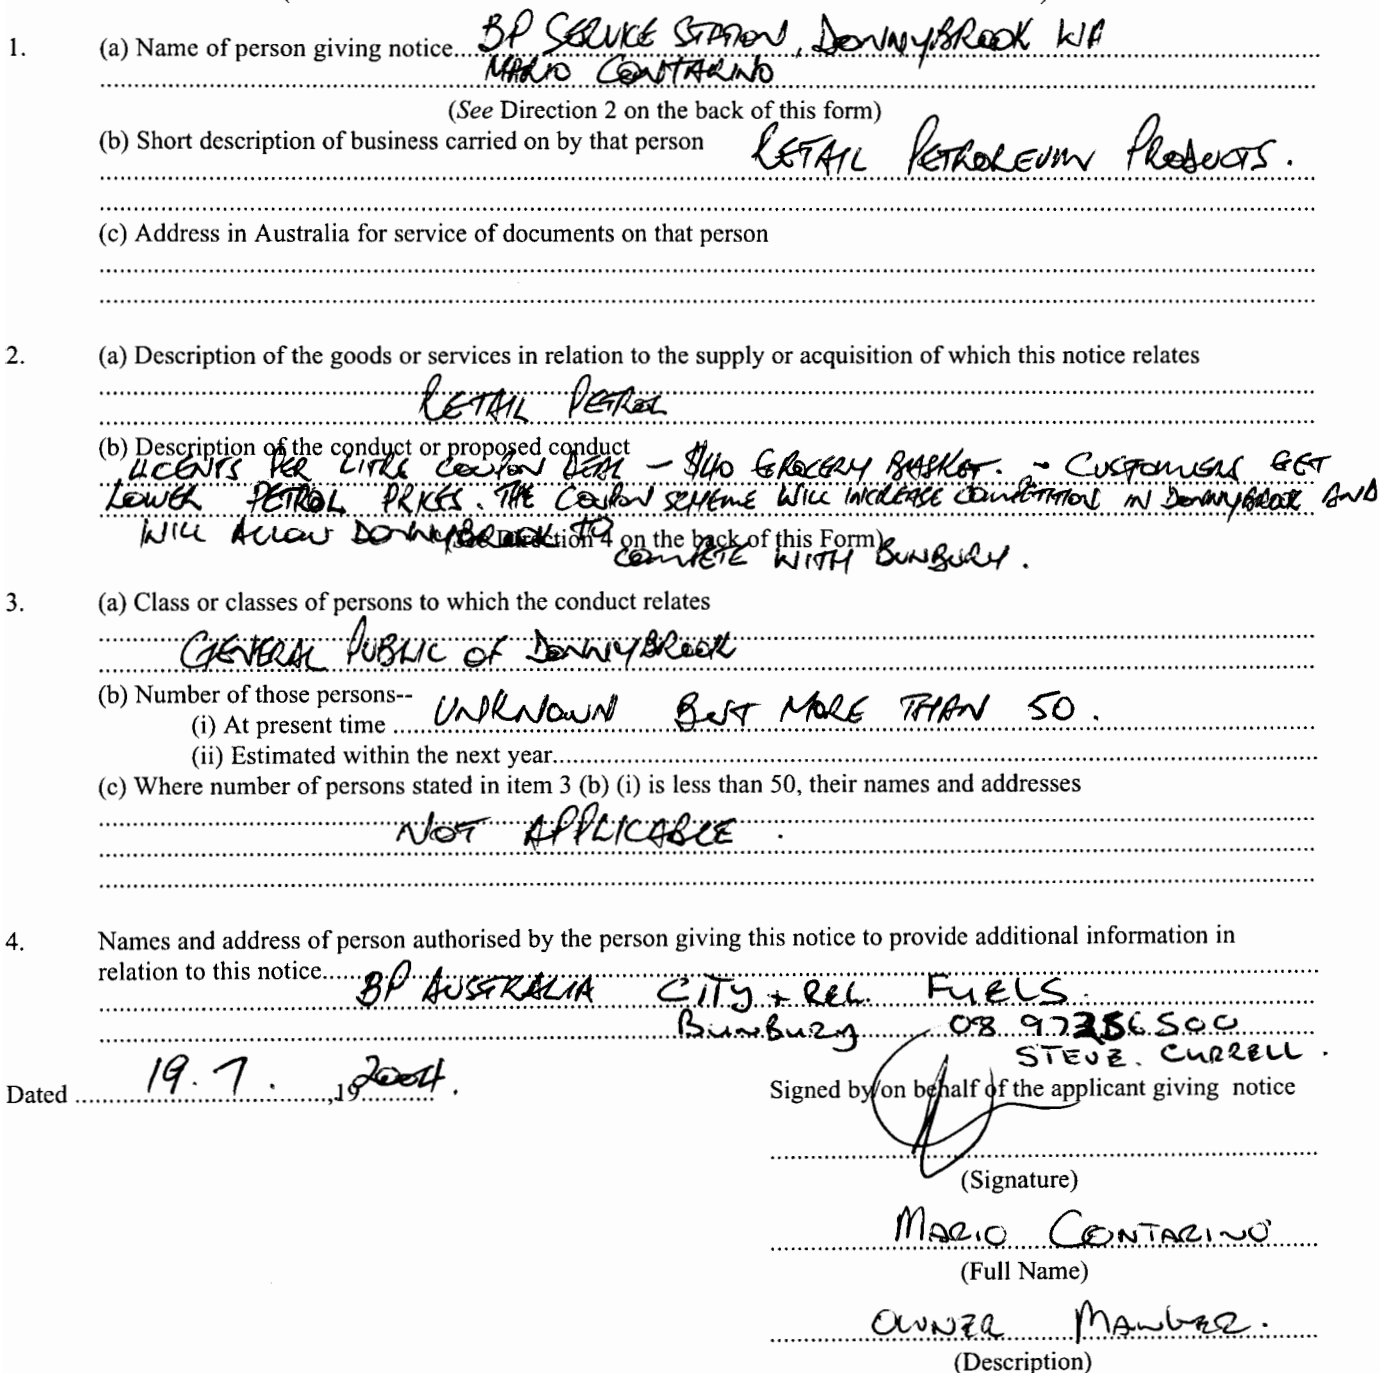 1. (a) Name of person giving notice... BP SERVICE STATION, DONNYBROOK WA
MARIO CONTARINO
(See Direction 2 on the back of this form)
(b) Short description of business carried on by that person RETAIL PETROLEUM PRODUCTS.
(c) Address in Australia for service of documents on that person
2. (a) Description of the goods or services in relation to the supply or acquisition of which this notice relates
RETAIL PETROL
(b) Description of the conduct or proposed conduct
4CENTS PER LITRE COUPON DEAL - $40 GROCERY BASKET. - CUSTOMERS GET
LOWER PETROL PRICES. THE COUPON SCHEME WILL INCREASE COMPETITION IN DONNYBROOK AND
WILL ALLOW DONNYBROOK TO
(See Direction 4 on the back of this Form)
COMPETE WITH BUNBURY.
3. (a) Class or classes of persons to which the conduct relates
GENERAL PUBLIC OF DONNYBROOK
(b) Number of those persons--
(i) At present time ... UNKNOWN BUT MORE THAN 50.
(ii) Estimated within the next year...
(c) Where number of persons stated in item 3 (b) (i) is less than 50, their names and addresses
NOT APPLICABLE.
4. Names and address of person authorised by the person giving this notice to provide additional information in
relation to this notice... BP AUSTRALIA CITY + REL. FUELS.
BUNBURY 08 97256500
STEVE. CURRELL.
Dated ... 19.7. ,19 2004.
Signed by/on behalf of the applicant giving notice
(Signature)
MARIO CONTARINO
(Full Name)
OWNER MANAGER.
(Description)